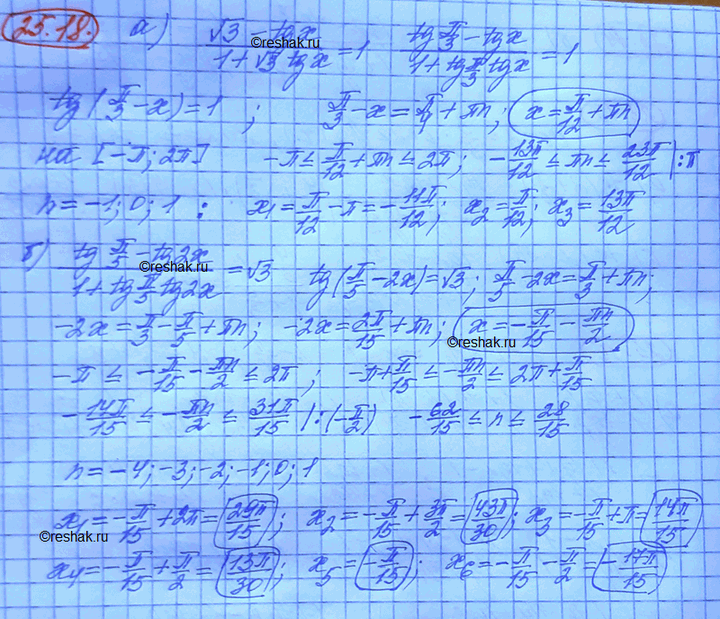 25.18. а) (√3 - tgx)/(1+√3 tgx) = 1   (tg π/3 - tgx)/(1+tg π/3 tgx) = 1
©reshak.ru
tg(π/3 - x) = 1 ;   π/3 - x = π/4 + πn;   x = π/12 + πn
на [-π; 2π]   -π ≤ π/12 + πn ≤ 2π;   -13π/12 ≤ πn ≤ 23π/12 |:π
n = -1; 0; 1 :   x₁ = π/12 - π = -11π/12;   x₂ = π/12;   x₃ = 13π/12
б) (tg π/5 - tg2x)/(1+tg π/5 tg2x) = √3   tg(π/5 - 2x) = √3;   π/5 - 2x = π/3 + πn;
©reshak.ru
-2x = π/3 - π/5 + πn;   -2x = 2π/15 + πn;   x = -π/15 - πn/2
©reshak.ru
-π ≤ -π/15 - πn/2 ≤ 2π ;   -π + π/15 ≤ -πn/2 ≤ 2π + π/15
-14π/15 ≤ -πn/2 ≤ 31π/15 |:(-π/2)   -62/15 ≤ n ≤ 28/15
n = -4; -3; -2; -1; 0; 1
x₁ = -π/15 + 2π = 29π/15 ;   x₂ = -π/15 + 3π/2 = 43π/30 ;   x₃ = -π/15 + π = 14π/15
©reshak.ru
x₄ = -π/15 + π/2 = 13π/30 ;   x₅ = -π/15 ;   x₆ = -π/15 - π/2 = -17π/15